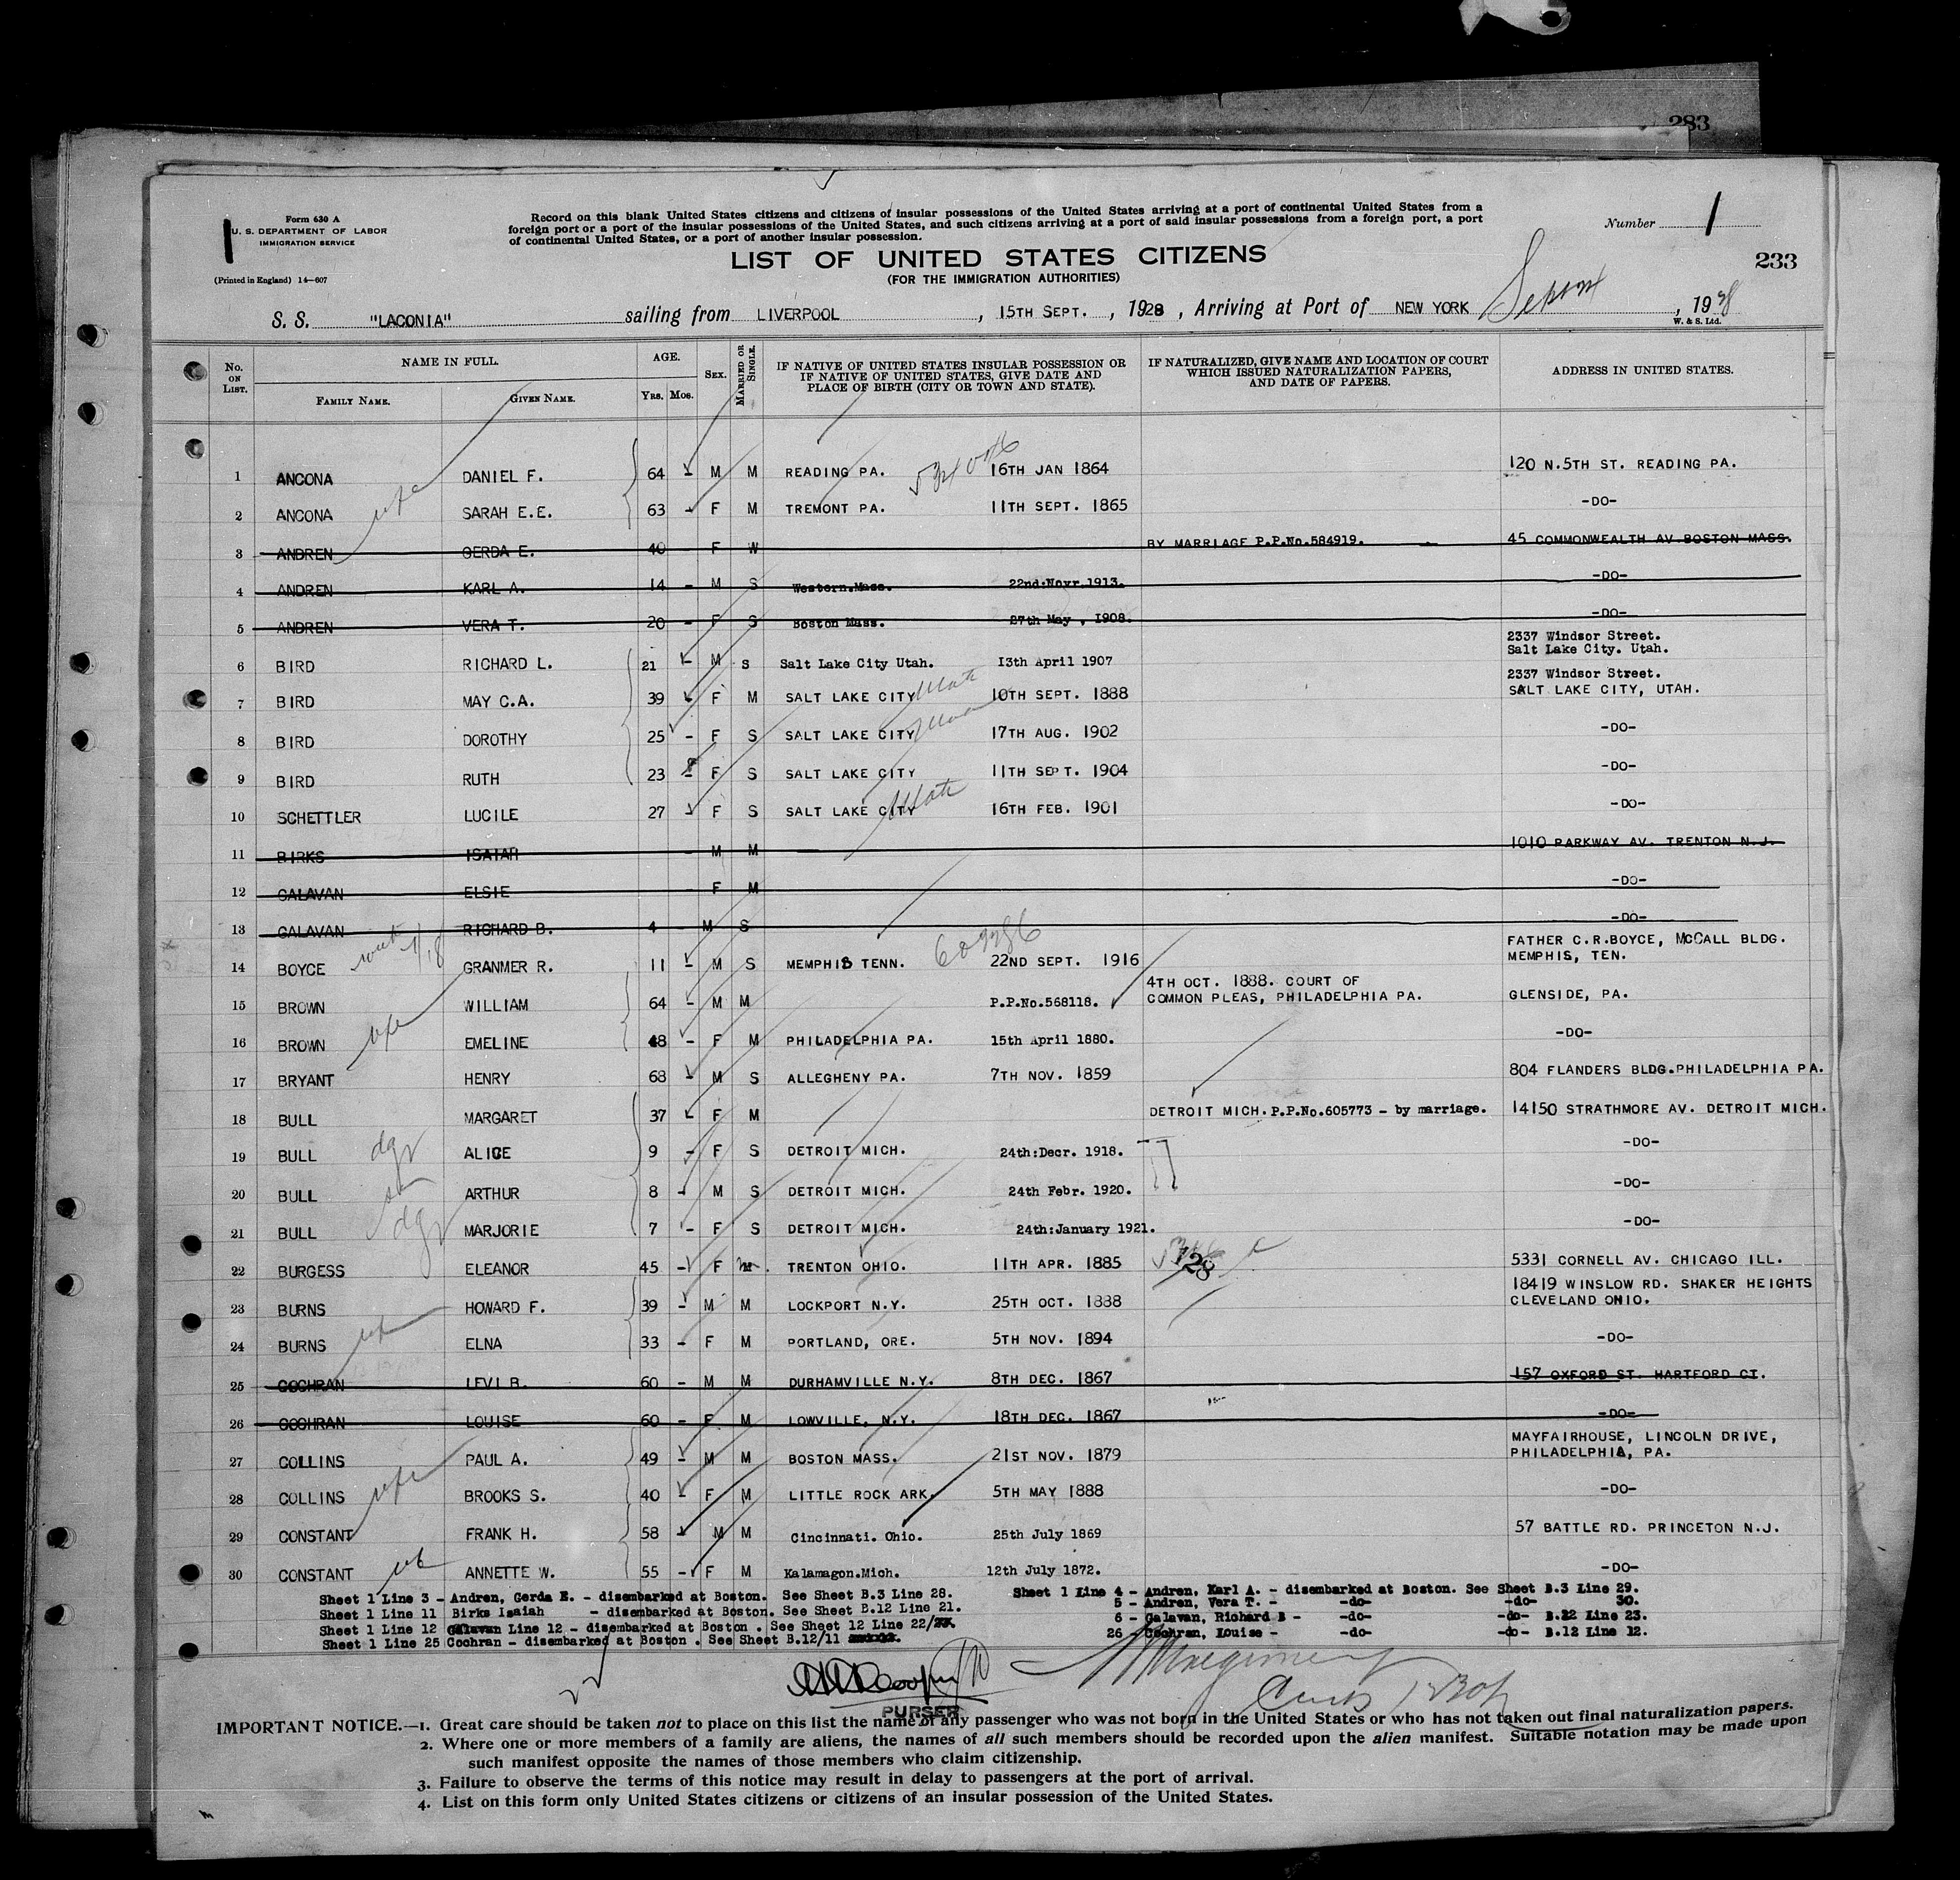 283
Form 630 A
U. S. DEPARTMENT OF LABOR
IMMIGRATION SERVICE
(Printed in England) 14—607
Record on this blank United States citizens and citizens of insular possessions of the United States arriving at a port of continental United States from a
foreign port or a port of the insular possessions of the United States, and such citizens arriving at a port of said insular possessions from a foreign port, a port
of continental United States, or a port of another insular possession.
Number 1
LIST OF UNITED STATES CITIZENS
(FOR THE IMMIGRATION AUTHORITIES)
233
S. S. "LACONIA" sailing from LIVERPOOL , 15TH SEPT. , 1928 , Arriving at Port of NEW YORK , 1928
W. & S. Ltd.
No. ON LIST. NAME IN FULL. FAMILY NAME. GIVEN NAME. AGE. YRS. MOS. SEX. MARRIED OR SINGLE. IF NATIVE OF UNITED STATES INSULAR POSSESSION OR IF NATIVE OF UNITED STATES, GIVE DATE AND PLACE OF BIRTH (CITY OR TOWN AND STATE). IF NATURALIZED, GIVE NAME AND LOCATION OF COURT WHICH ISSUED NATURALIZATION PAPERS, AND DATE OF PAPERS. ADDRESS IN UNITED STATES.
1 ANCONA DANIEL F. 64 - M M READING PA. 16TH JAN 1864 120 N.5TH ST. READING PA.
2 ANCONA SARAH E.E. 63 - F M TREMONT PA. 11TH SEPT. 1865 -DO-
3 ANDREN GERDA E. 40 F W BY MARRIAGE P.P.No.584919. 45 COMMONWEALTH AV.BOSTON MASS.
4 ANDREN KARL A. 14 - M S Western.Mass. 22nd:Novr.1913. -DO-
5 ANDREN VERA T. 20 - F S Boston Mass. 27th May , 1908. -DO-
6 BIRD RICHARD L. 21 - M S Salt Lake City Utah. 13th April 1907 2337 Windsor Street. Salt Lake City. Utah.
7 BIRD MAY C.A. 39 - F M SALT LAKE CITY Utah 10TH SEPT. 1888 2337 Windsor Street. SALT LAKE CITY, UTAH.
8 BIRD DOROTHY 25 - F S SALT LAKE CITY 17TH AUG. 1902 -DO-
9 BIRD RUTH 23 - F S SALT LAKE CITY 11TH SEPT. 1904 -DO-
10 SCHETTLER LUCILE 27 - F S SALT LAKE CITY Utah 16TH FEB. 1901 -DO-
11 BIRKS ISAIAH - M M 1010 PARKWAY AV. TRENTON N.J.
12 GALAVAN ELSIE - F M -DO-
13 GALAVAN RICHARD B. 4 - M S -DO-
14 BOYCE GRANMER R. 11 - M S MEMPHIS TENN. 22ND SEPT. 1916 FATHER C.R.BOYCE, McCALL BLDG. MEMPHIS, TEN.
15 BROWN WILLIAM 64 - M M P.P.No.568118. 4TH OCT. 1888. COURT OF COMMON PLEAS, PHILADELPHIA PA. GLENSIDE, PA.
16 BROWN EMELINE 48 - F M PHILADELPHIA PA. 15th April 1880. -DO-
17 BRYANT HENRY 68 - M S ALLEGHENY PA. 7TH NOV. 1859 804 FLANDERS BLDG.PHILADELPHIA PA.
18 BULL MARGARET 37 - F M DETROIT MICH. P.P.No.605773 - by marriage. 14150 STRATHMORE AV. DETROIT MICH.
19 BULL dgr ALICE 9 - F S DETROIT MICH. 24th:Decr. 1918. -DO-
20 BULL ARTHUR 8 - M S DETROIT MICH. 24th Febr. 1920. -DO-
21 BULL dgr MARJORIE 7 - F S DETROIT MICH. 24th:January 1921. -DO-
22 BURGESS ELEANOR 45 - F M. TRENTON OHIO. 11TH APR. 1885 128 5331 CORNELL AV. CHICAGO ILL.
23 BURNS HOWARD F. 39 - M M LOCKPORT N.Y. 25TH OCT. 1888 18419 WINSLOW RD. SHAKER HEIGHTS CLEVELAND OHIO.
24 BURNS ELNA 33 - F M PORTLAND, ORE. 5TH NOV. 1894 -DO-
25 COCHRAN LEVI B. 60 - M M DURHAMVILLE N.Y. 8TH DEC. 1867 157 OXFORD ST. HARTFORD CT.
26 COCHRAN LOUISE 60 - F M LOWVILLE, N.Y. 18TH DEC. 1867 -DO-
27 COLLINS PAUL A. 49 - M M BOSTON MASS. 21ST NOV. 1879 MAYFAIRHOUSE, LINCOLN DRIVE, PHILADELPHIA, PA.
28 COLLINS BROOKS S. 40 - F M LITTLE ROCK ARK. 5TH MAY 1888 -DO-
29 CONSTANT FRANK H. 58 - M M Cincinnati. Ohio. 25th July 1869 57 BATTLE RD. PRINCETON N.J.
30 CONSTANT ANNETTE W. 55 - F M Kalamagon.Mich. 12th July 1872. -DO-
Sheet 1 Line 3 - Andren, Gerda E. - disembarked at Boston. See Sheet B.3 Line 28. Sheet 1 Line 4 - Andren, Karl A. - disembarked at Boston. See Sheet B.3 Line 29.
Sheet 1 Line 11 Birks Isaiah - disembarked at Boston. See Sheet B.12 Line 21. 5 - Andren, Vera T. - -do- -do- 30.
Sheet 1 Line 12 Galavan Line 12 - disembarked at Boston . See Sheet 12 Line 22/ 6 - Galavan, Richard B - -do- -do- B.12 Line 23.
Sheet 1 Line 25 Cochran - disembarked at Boston . See Sheet B.12/11 26 - Cochran, Louise - -do- -do- B.12 Line 12.
PURSER
IMPORTANT NOTICE.—1. Great care should be taken not to place on this list the name of any passenger who was not born in the United States or who has not taken out final naturalization papers.
2. Where one or more members of a family are aliens, the names of all such members should be recorded upon the alien manifest. Suitable notation may be made upon
such manifest opposite the names of those members who claim citizenship.
3. Failure to observe the terms of this notice may result in delay to passengers at the port of arrival.
4. List on this form only United States citizens or citizens of an insular possession of the United States.